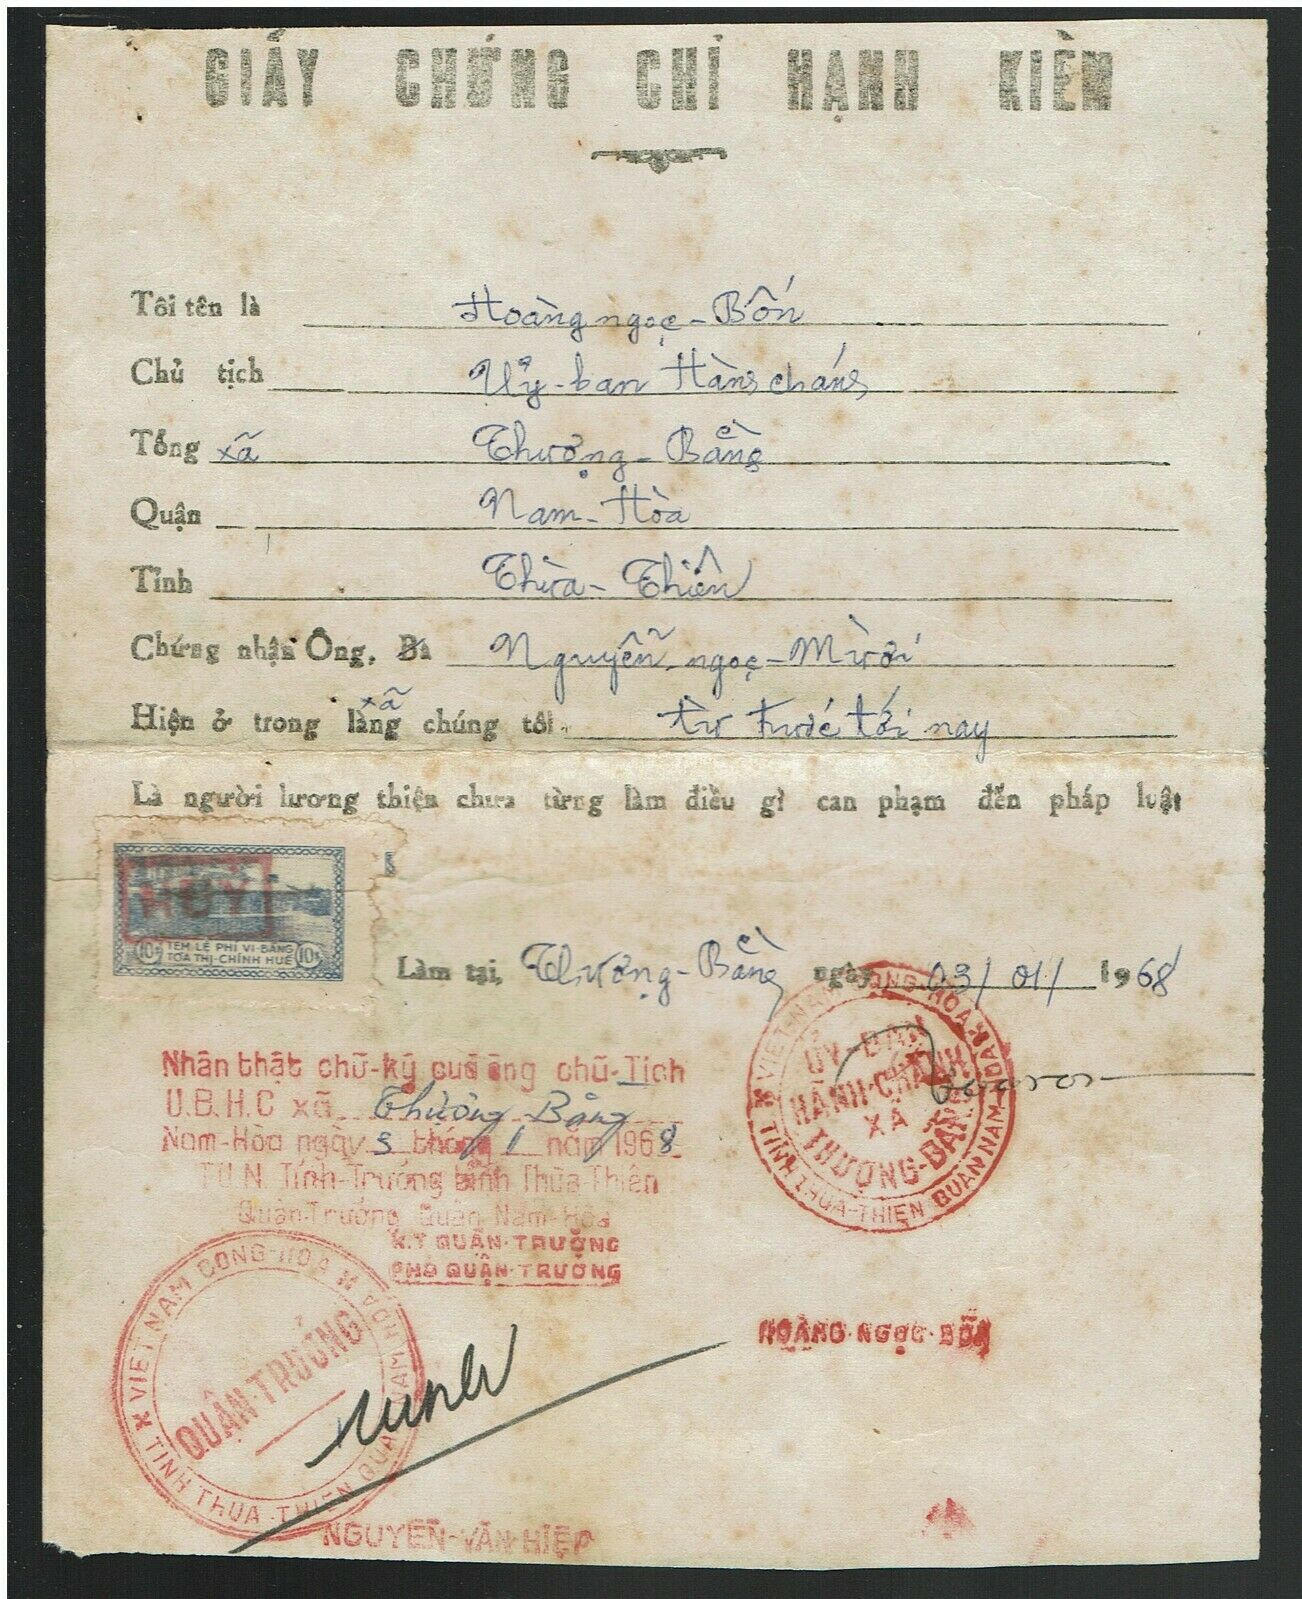 GIẤY CHỨNG CHỈ HẠNH KIỂM
Tôi tên là Hoàng ngọc-Bốn
Chủ tịch Ủy-ban Hành chánh
Tổng xã Thượng-Bằng
Quận Nam-Hòa
Tỉnh Thừa-Thiên
Chứng nhận Ông, Bà Nguyễn-ngọc-Mười
Hiện ở trong làng xã chúng tôi. từ trước tới nay
Là người lương thiện chưa từng làm điều gì can phạm đến pháp luật
HỦY
10$ TEM LỆ PHÍ VI-BẰNG 10$
TÒA THỊ-CHÍNH HUẾ
Làm tại, Thượng-Bằng ngày 03/01/1968
Nhân thật chữ-ký cuả ông chũ-Tịch
U.B.H.C xã Thượng Bằng
Nam-Hòa ngày 3 tháng 1 năm 1968
T.U.N. Tỉnh-Trưởng tỉnh Thừa Thiên
Quận-Trưởng Quận Nam-Hòa
K.T QUẬN-TRƯỞNG
PHÓ QUẬN-TRƯỞNG
VIỆT-NAM CỘNG-HÒA
ỦY-BAN
HÀNH-CHÁNH
XÃ
THƯỢNG-BẰNG
TỈNH THỪA-THIÊN QUẬN NAM-HÒA
HOÀNG-NGỌC-BỐN
VIỆT NAM CỘNG-HÒA
QUẬN-TRƯỞNG
TỈNH THỪA-THIÊN QUẬN NAM HÒA
NGUYỄN-VĂN-HIỆP